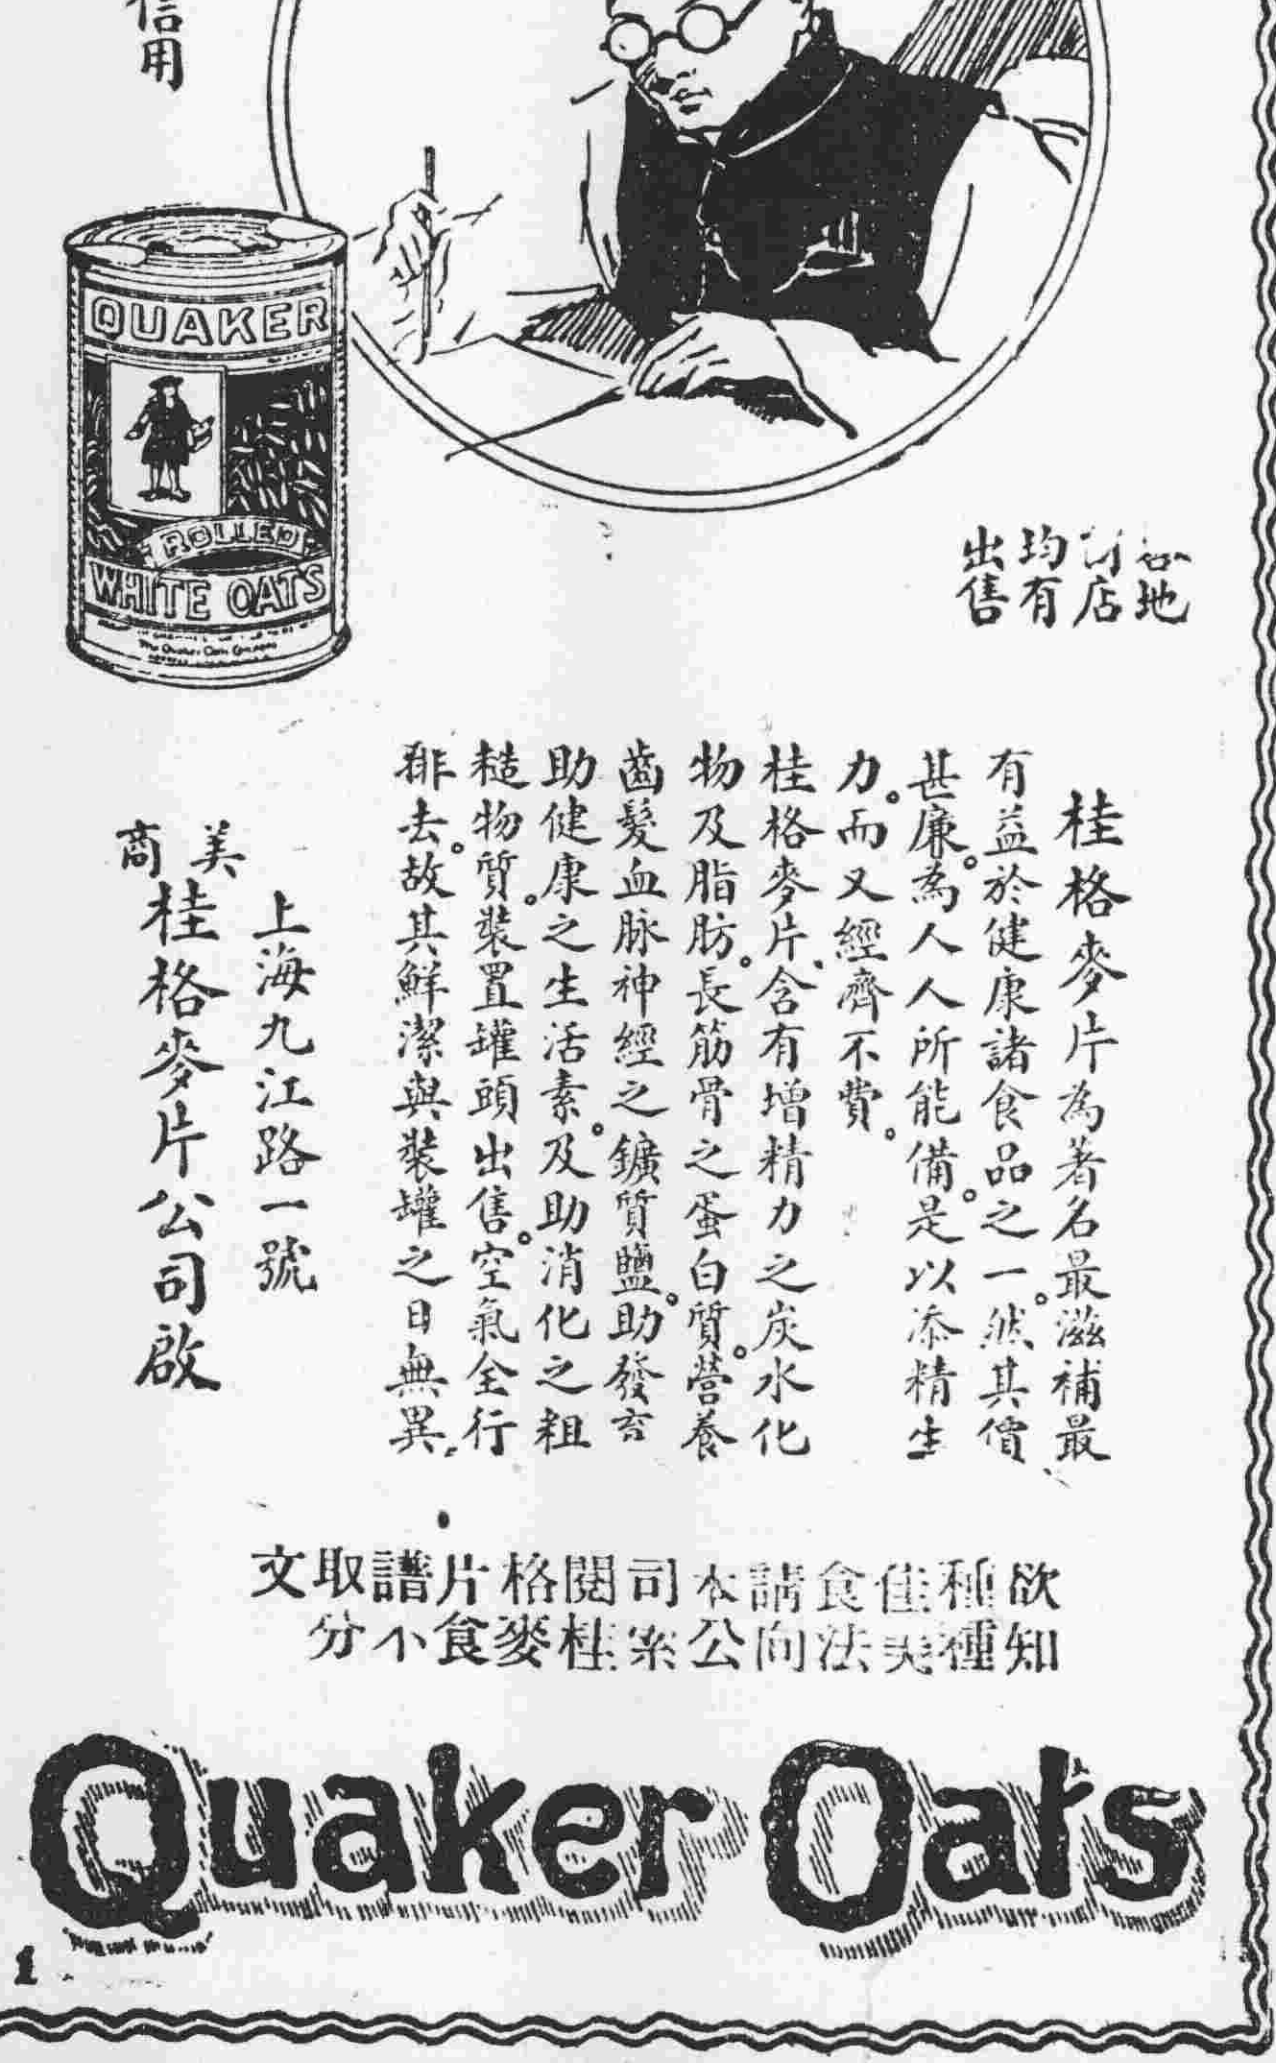 信用
QUAKER
ROLLED
WHITE OATS
The Quaker Oats Company
各地
店
均有
出售
桂格麥片為著名最滋補最
有益於健康諸食品之一。然其價
甚廉。為人人所能備。是以添精生
力。而又經濟不費。
桂格麥片、含有增精力之炭水化
物及脂肪。長筋骨之蛋白質。營養
齒髮血脉神經之鑛質鹽。助發育
助健康之生活素。及助消化之粗
糙物質。裝置罐頭出售。空氣全行
排去。故其鮮潔與裝罐之日無異。
上海九江路一號
美商
桂格麥片公司啟
欲知
種種
佳美
食法
請向
本公
司索
閱桂
格麥
片食
譜不
取分
文
Quaker Oats
1